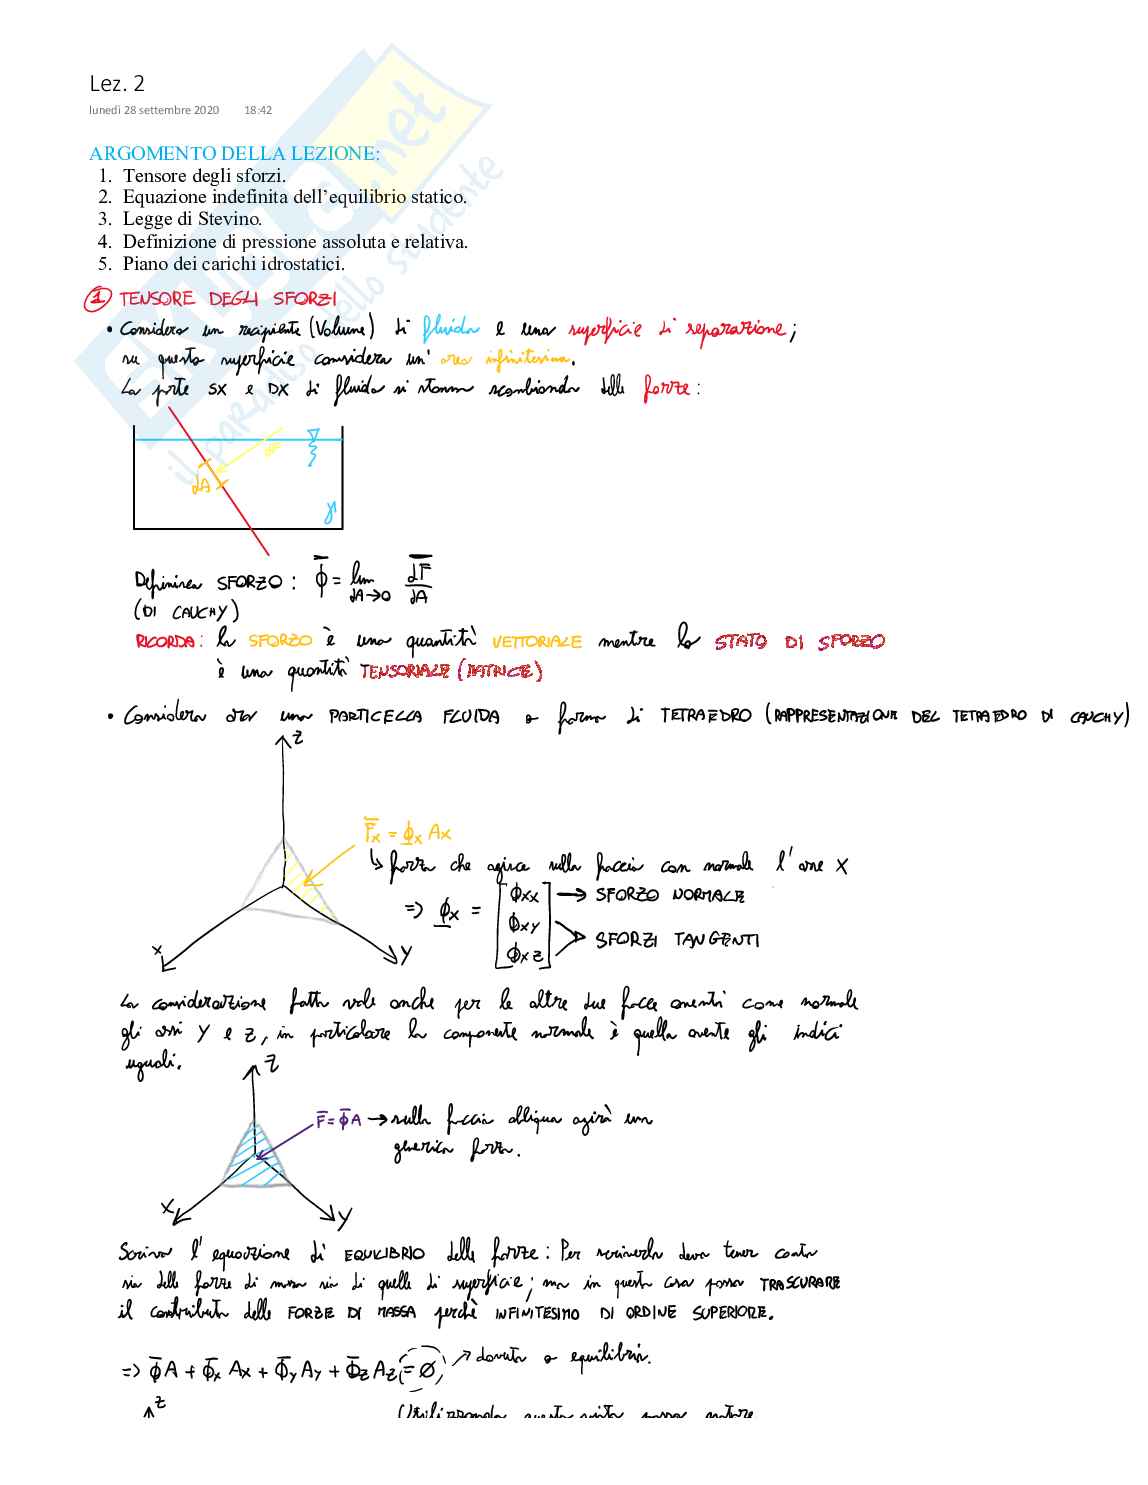 Lez. 2
lunedì 28 settembre 2020 18:42
ARGOMENTO DELLA LEZIONE:
1. Tensore degli sforzi.
2. Equazione indefinita dell'equilibrio statico.
3. Legge di Stevino.
4. Definizione di pressione assoluta e relativa.
5. Piano dei carichi idrostatici.
1 TENSORE DEGLI SFORZI
• Considero un recipiente (Volume) di fluido e una superficie di separazione;
su questa superficie considero un' area infinitesima.
La parte SX e DX di fluido si stanno scambiando delle forze:
dA
γ
Definisco SFORZO: Φ̅ = lim dA→0 dF̅/dA
(DI CAUCHY)
RICORDA: lo SFORZO è una quantità VETTORIALE mentre lo STATO DI SFORZO
è una quantità TENSORIALE (MATRICE)
• Considero ora una PARTICELLA FLUIDA a forma di TETRAEDRO (RAPPRESENTAZIONE DEL TETRAEDRO DI CAUCHY)
z
F̅x = Φx Ax
↳ forza che agisce sulla faccia con normale l'asse X
=> Φx = [Φxx Φxy Φxz]
→ SFORZO NORMALE
SFORZI TANGENTI
x
y
La considerazione fatta vale anche per le altre due facce aventi come normale
gli assi y e z, in particolare la componente normale è quella avente gli indici
uguali.
z
F̅ = Φ̅A → sulla faccia obliqua agirà una
generica forza.
x
y
Scrivo l'equazione di EQUILIBRIO delle forze: Per scriverla devo tener conto
sia delle forze di massa sia di quelle di superficie; ma in questo caso posso TRASCURARE
il contributo delle FORZE DI MASSA perchè INFINITESIMO DI ORDINE SUPERIORE.
=> Φ̅A + Φ̅x Ax + Φ̅y Ay + Φ̅z Az = 0 ↗ dovuto a equilibrio.
z